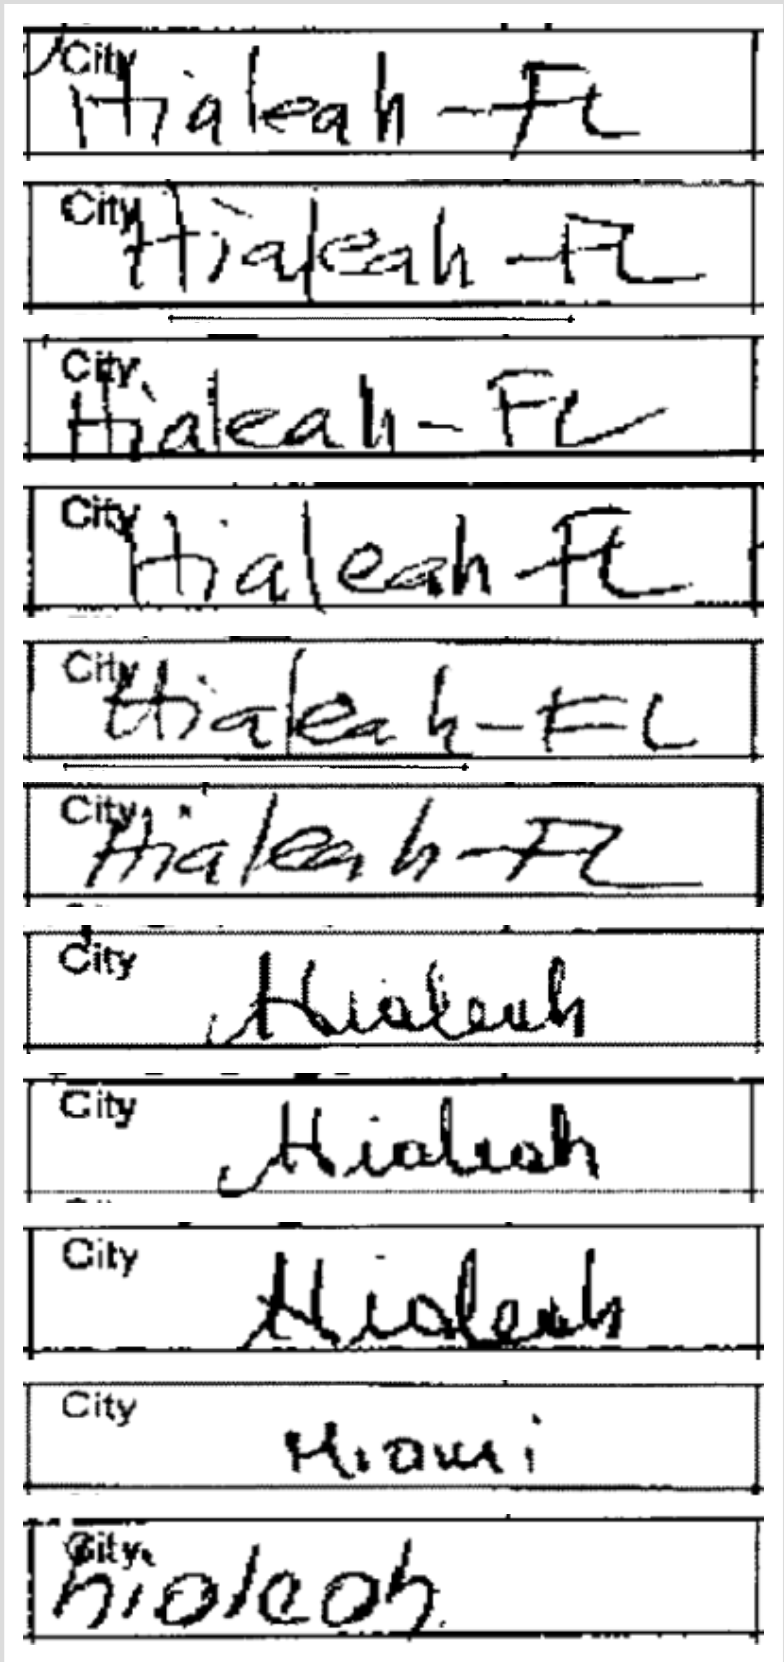 City
Hialeah - FL
City
Hialeah - FL
City
Hialeah - FL
City
Hialeah FL
City
Hialeah - FL
City
Hialeah - FL
City
Hialeah
City
Hialeah
City
Hialeah
City
Miami
City
hialeah